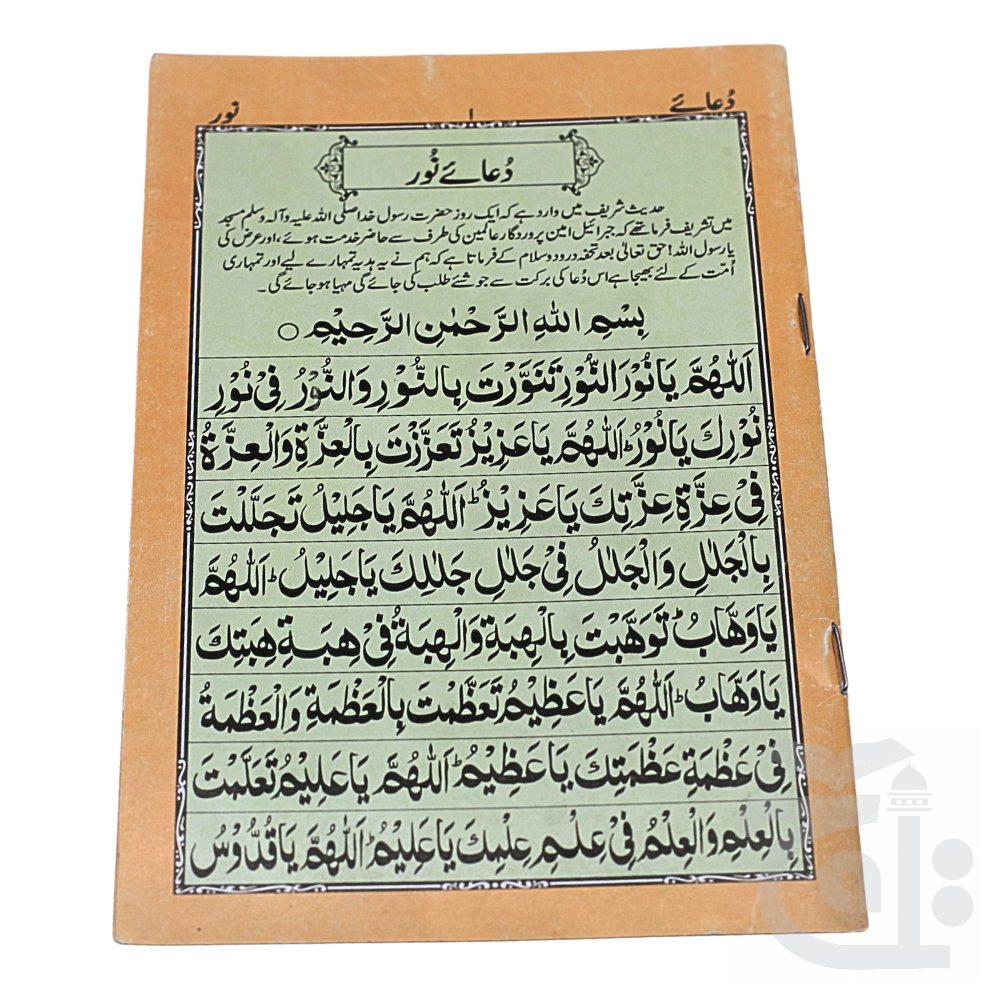 دُعائے ۱ نور
دُعائے نُور
حدیث شریف میں وارد ہے کہ ایک روز حضرت رسول خدا صلی اللہ علیہ وآلہ وسلم مسجد
میں تشریف فرما تھے کہ جبرائیل امین پروردگار عالمین کی طرف سے حاضر خدمت ہوئے، اور عرض کی
یا رسول اللہ! حق تعالیٰ بعد تحفہ درود و سلام کے فرماتا ہے کہ ہم نے یہ ہدیہ تمہارے لیے اور تمہاری
اُمّت کے لئے بھیجا ہے اس دُعا کی برکت سے جو شئے طلب کی جائے گی مہیا ہو جائے گی۔
بِسْمِ اللهِ الرَّحْمٰنِ الرَّحِيْمِ ○
اَللّٰهُمَّ يَا نُوْرَ النُّوْرِ تَنَوَّرْتَ بِالنُّوْرِ وَالنُّوْرُ فِيْ نُوْرِ
نُوْرِكَ يَا نُوْرُ ؕ اَللّٰهُمَّ يَا عَزِيْزُ تَعَزَّزْتَ بِالْعِزَّةِ وَالْعِزَّةُ
فِيْ عِزَّةِ عِزَّتِكَ يَا عَزِيْزُ ؕ اَللّٰهُمَّ يَا جَلِيْلُ تَجَلَّلْتَ
بِالْجَلٰلِ وَالْجَلٰلُ فِيْ جَلٰلِ جَلٰلِكَ يَا جَلِيْلُ ؕ اَللّٰهُمَّ
يَا وَهَّابُ ؕ تَوَهَّبْتَ بِالْهِبَةِ وَالْهِبَةُ فِيْ هِبَةِ هِبَتِكَ
يَا وَهَّابُ ؕ اَللّٰهُمَّ يَا عَظِيْمُ تَعَظَّمْتَ بِالْعَظْمَةِ وَالْعَظْمَةُ
فِيْ عَظْمَةِ عَظْمَتِكَ يَا عَظِيْمُ ؕ اَللّٰهُمَّ يَا عَلِيْمُ تَعَلَّمْتَ
بِالْعِلْمِ وَالْعِلْمُ فِيْ عِلْمِ عِلْمِكَ يَا عَلِيْمُ ؕ اَللّٰهُمَّ يَا قُدُّوْسُ